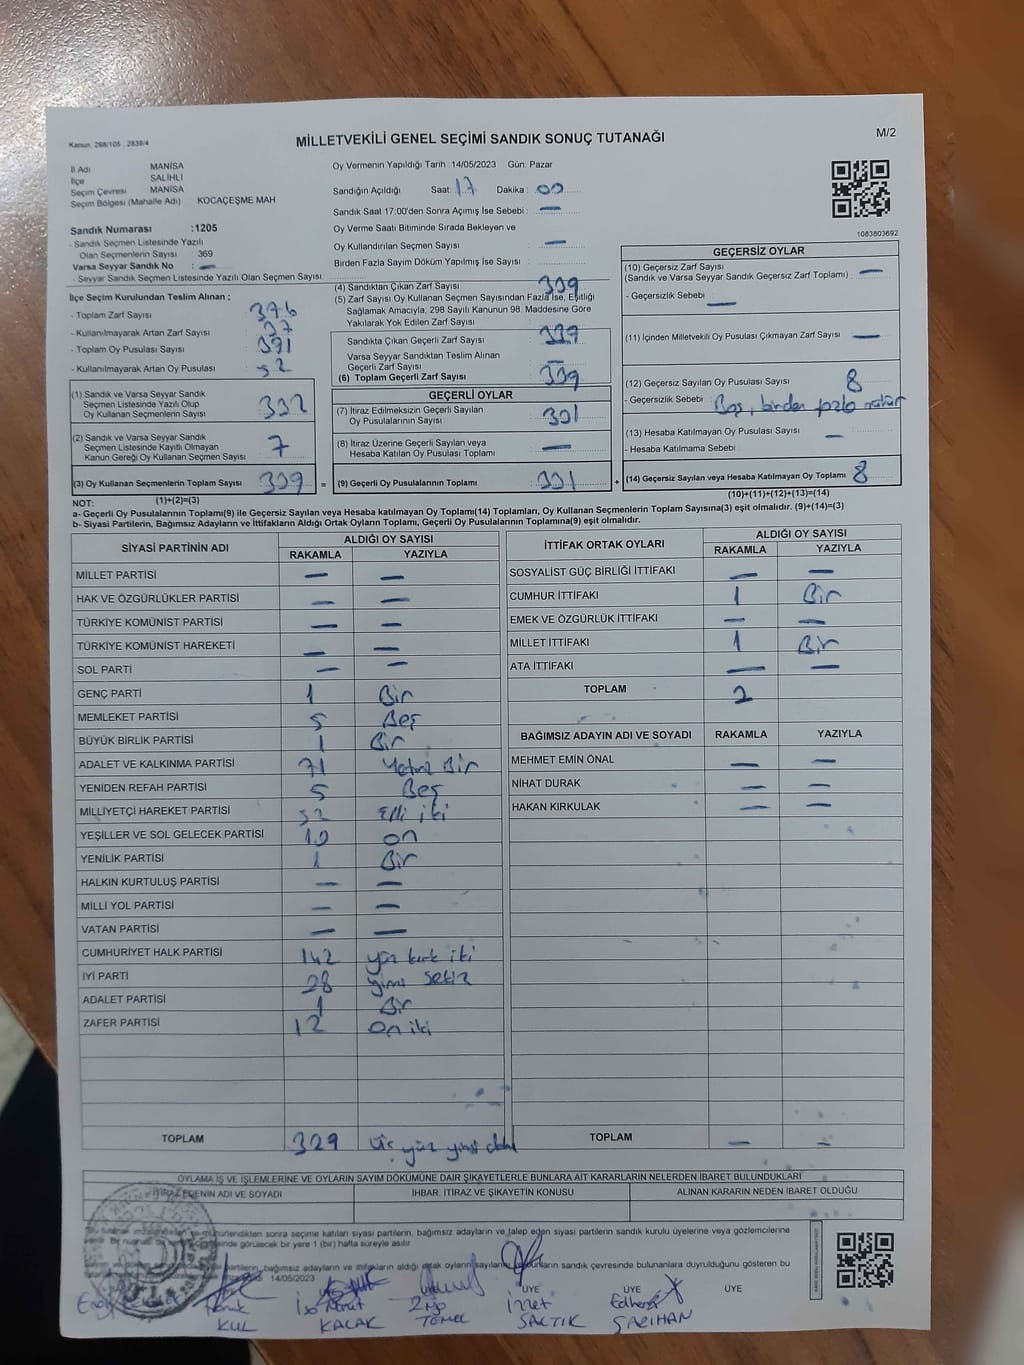 Kanun, 298/105 , 2839/4
MİLLETVEKİLİ GENEL SEÇİMİ SANDIK SONUÇ TUTANAĞI
M/2
İl Adı MANİSA
İlçe SALİHLİ
Seçim Çevresi MANİSA
Seçim Bölgesi (Mahalle Adı) KOCAÇEŞME MAH
Sandık Numarası :1205
- Sandık Seçmen Listesinde Yazılı
Olan Seçmenlerin Sayısı 369
Varsa Seyyar Sandık No : —
- Seyyar Sandık Seçmen Listesinde Yazılı Olan Seçmen Sayısı:
Oy Vermenin Yapıldığı Tarih :14/05/2023 Gün: Pazar
Sandığın Açıldığı Saat: 17 Dakika : 00
Sandık Saat 17:00'den Sonra Açılmış İse Sebebi : —
Oy Verme Saati Bitiminde Sırada Bekleyen ve
Oy Kullandırılan Seçmen Sayısı : —
Birden Fazla Sayım Döküm Yapılmış İse Sayısı :
1083803692
İlçe Seçim Kurulundan Teslim Alınan ;
- Toplam Zarf Sayısı : 376
- Kullanılmayarak Artan Zarf Sayısı : 37
- Toplam Oy Pusulası Sayısı : 391
- Kullanılmayarak Artan Oy Pusulası : 52
(1) Sandık ve Varsa Seyyar Sandık
Seçmen Listesinde Yazılı Olup
Oy Kullanan Seçmenlerin Sayısı : 332
(2) Sandık ve Varsa Seyyar Sandık
Seçmen Listesinde Kayıtlı Olmayan
Kanun Gereği Oy Kullanan Seçmen Sayısı : 7
(3) Oy Kullanan Seçmenlerin Toplam Sayısı : 339 =
(1)+(2)=(3)
(4) Sandıktan Çıkan Zarf Sayısı : 339
(5) Zarf Sayısı Oy Kullanan Seçmen Sayısından Fazla İse, Eşitliği
Sağlamak Amacıyla, 298 Sayılı Kanunun 98. Maddesine Göre
Yakılarak Yok Edilen Zarf Sayısı :
Sandıkta Çıkan Geçerli Zarf Sayısı : 339
Varsa Seyyar Sandıktan Teslim Alınan
Geçerli Zarf Sayısı : —
(6) Toplam Geçerli Zarf Sayısı : 339
GEÇERLİ OYLAR
(7) İtiraz Edilmeksizin Geçerli Sayılan
Oy Pusulalarının Sayısı : 331
(8) İtiraz Üzerine Geçerli Sayılan veya
Hesaba Katılan Oy Pusulası Toplamı : —
(9) Geçerli Oy Pusulalarının Toplamı : 331 +
GEÇERSİZ OYLAR
(10) Geçersiz Zarf Sayısı
(Sandık ve Varsa Seyyar Sandık Geçersiz Zarf Toplamı) : —
- Geçersizlik Sebebi —
(11) İçinden Milletvekili Oy Pusulası Çıkmayan Zarf Sayısı : —
(12) Geçersiz Sayılan Oy Pusulası Sayısı : 8
- Geçersizlik Sebebi : Boş, birden fazla mühür
(13) Hesaba Katılmayan Oy Pusulası Sayısı : —
- Hesaba Katılmama Sebebi :
(14) Geçersiz Sayılan veya Hesaba Katılmayan Oy Toplamı : 8
(10)+(11)+(12)+(13)=(14)
NOT:
a- Geçerli Oy Pusulalarının Toplamı(9) ile Geçersiz Sayılan veya Hesaba Katılmayan Oy Toplamı(14) Toplamları, Oy Kullanan Seçmenlerin Toplam Sayısına(3) eşit olmalıdır. (9)+(14)=(3)
b- Siyasi Partilerin, Bağımsız Adayların ve İttifakların Aldığı Ortak Oyların Toplamı, Geçerli Oy Pusulalarının Toplamına(9) eşit olmalıdır.
SİYASİ PARTİNİN ADI ALDIĞI OY SAYISI
RAKAMLA YAZIYLA
MİLLET PARTİSİ — —
HAK VE ÖZGÜRLÜKLER PARTİSİ — —
TÜRKİYE KOMÜNİST PARTİSİ — —
TÜRKİYE KOMÜNİST HAREKETİ — —
SOL PARTİ — —
GENÇ PARTİ 1 Bir
MEMLEKET PARTİSİ 5 Beş
BÜYÜK BİRLİK PARTİSİ 1 Bir
ADALET VE KALKINMA PARTİSİ 71 Yetmiş Bir
YENİDEN REFAH PARTİSİ 5 Beş
MİLLİYETÇİ HAREKET PARTİSİ 52 Elli iki
YEŞİLLER VE SOL GELECEK PARTİSİ 10 on
YENİLİK PARTİSİ 1 Bir
HALKIN KURTULUŞ PARTİSİ — —
MİLLİ YOL PARTİSİ — —
VATAN PARTİSİ — —
CUMHURİYET HALK PARTİSİ 142 yüz kırk iki
İYİ PARTİ 28 yirmi sekiz
ADALET PARTİSİ 1 Bir
ZAFER PARTİSİ 12 on iki
TOPLAM 329 üç yüz yirmi dokuz
İTTİFAK ORTAK OYLARI ALDIĞI OY SAYISI
RAKAMLA YAZIYLA
SOSYALİST GÜÇ BİRLİĞİ İTTİFAKI — —
CUMHUR İTTİFAKI 1 Bir
EMEK VE ÖZGÜRLÜK İTTİFAKI — —
MİLLET İTTİFAKI 1 Bir
ATA İTTİFAKI — —
TOPLAM 2
BAĞIMSIZ ADAYIN ADI VE SOYADI RAKAMLA YAZIYLA
MEHMET EMİN ÖNAL — —
NİHAT DURAK — —
HAKAN KIRKULAK — —
TOPLAM — —
OYLAMA İŞ VE İŞLEMLERİNE VE OYLARIN SAYIM DÖKÜMÜNE DAİR ŞİKAYETLERLE BUNLARA AİT KARARLARIN NELERDEN İBARET BULUNDUKLARI
İTİRAZ EDENİN ADI VE SOYADI İHBAR, İTİRAZ VE ŞİKAYETİN KONUSU ALINAN KARARIN NEDEN İBARET OLDUĞU
sonra seçime katılan siyasi partilerin, bağımsız adayların ve talep eden siyasi partilerin sandık kurulu üyelerine veya gözlemcilerine
görülecek bir yere 1 (bir) hafta süreyle asılır.
partilerin, bağımsız adayların ve ittifakların aldığı ortak oyların sandık çevresinde bulunanlara duyrulduğunu gösteren bu
14/05/2023
ÜYE ÜYE ÜYE
KUL KACAK TEMEL İzzet SALTIK Edhem SARIHAN